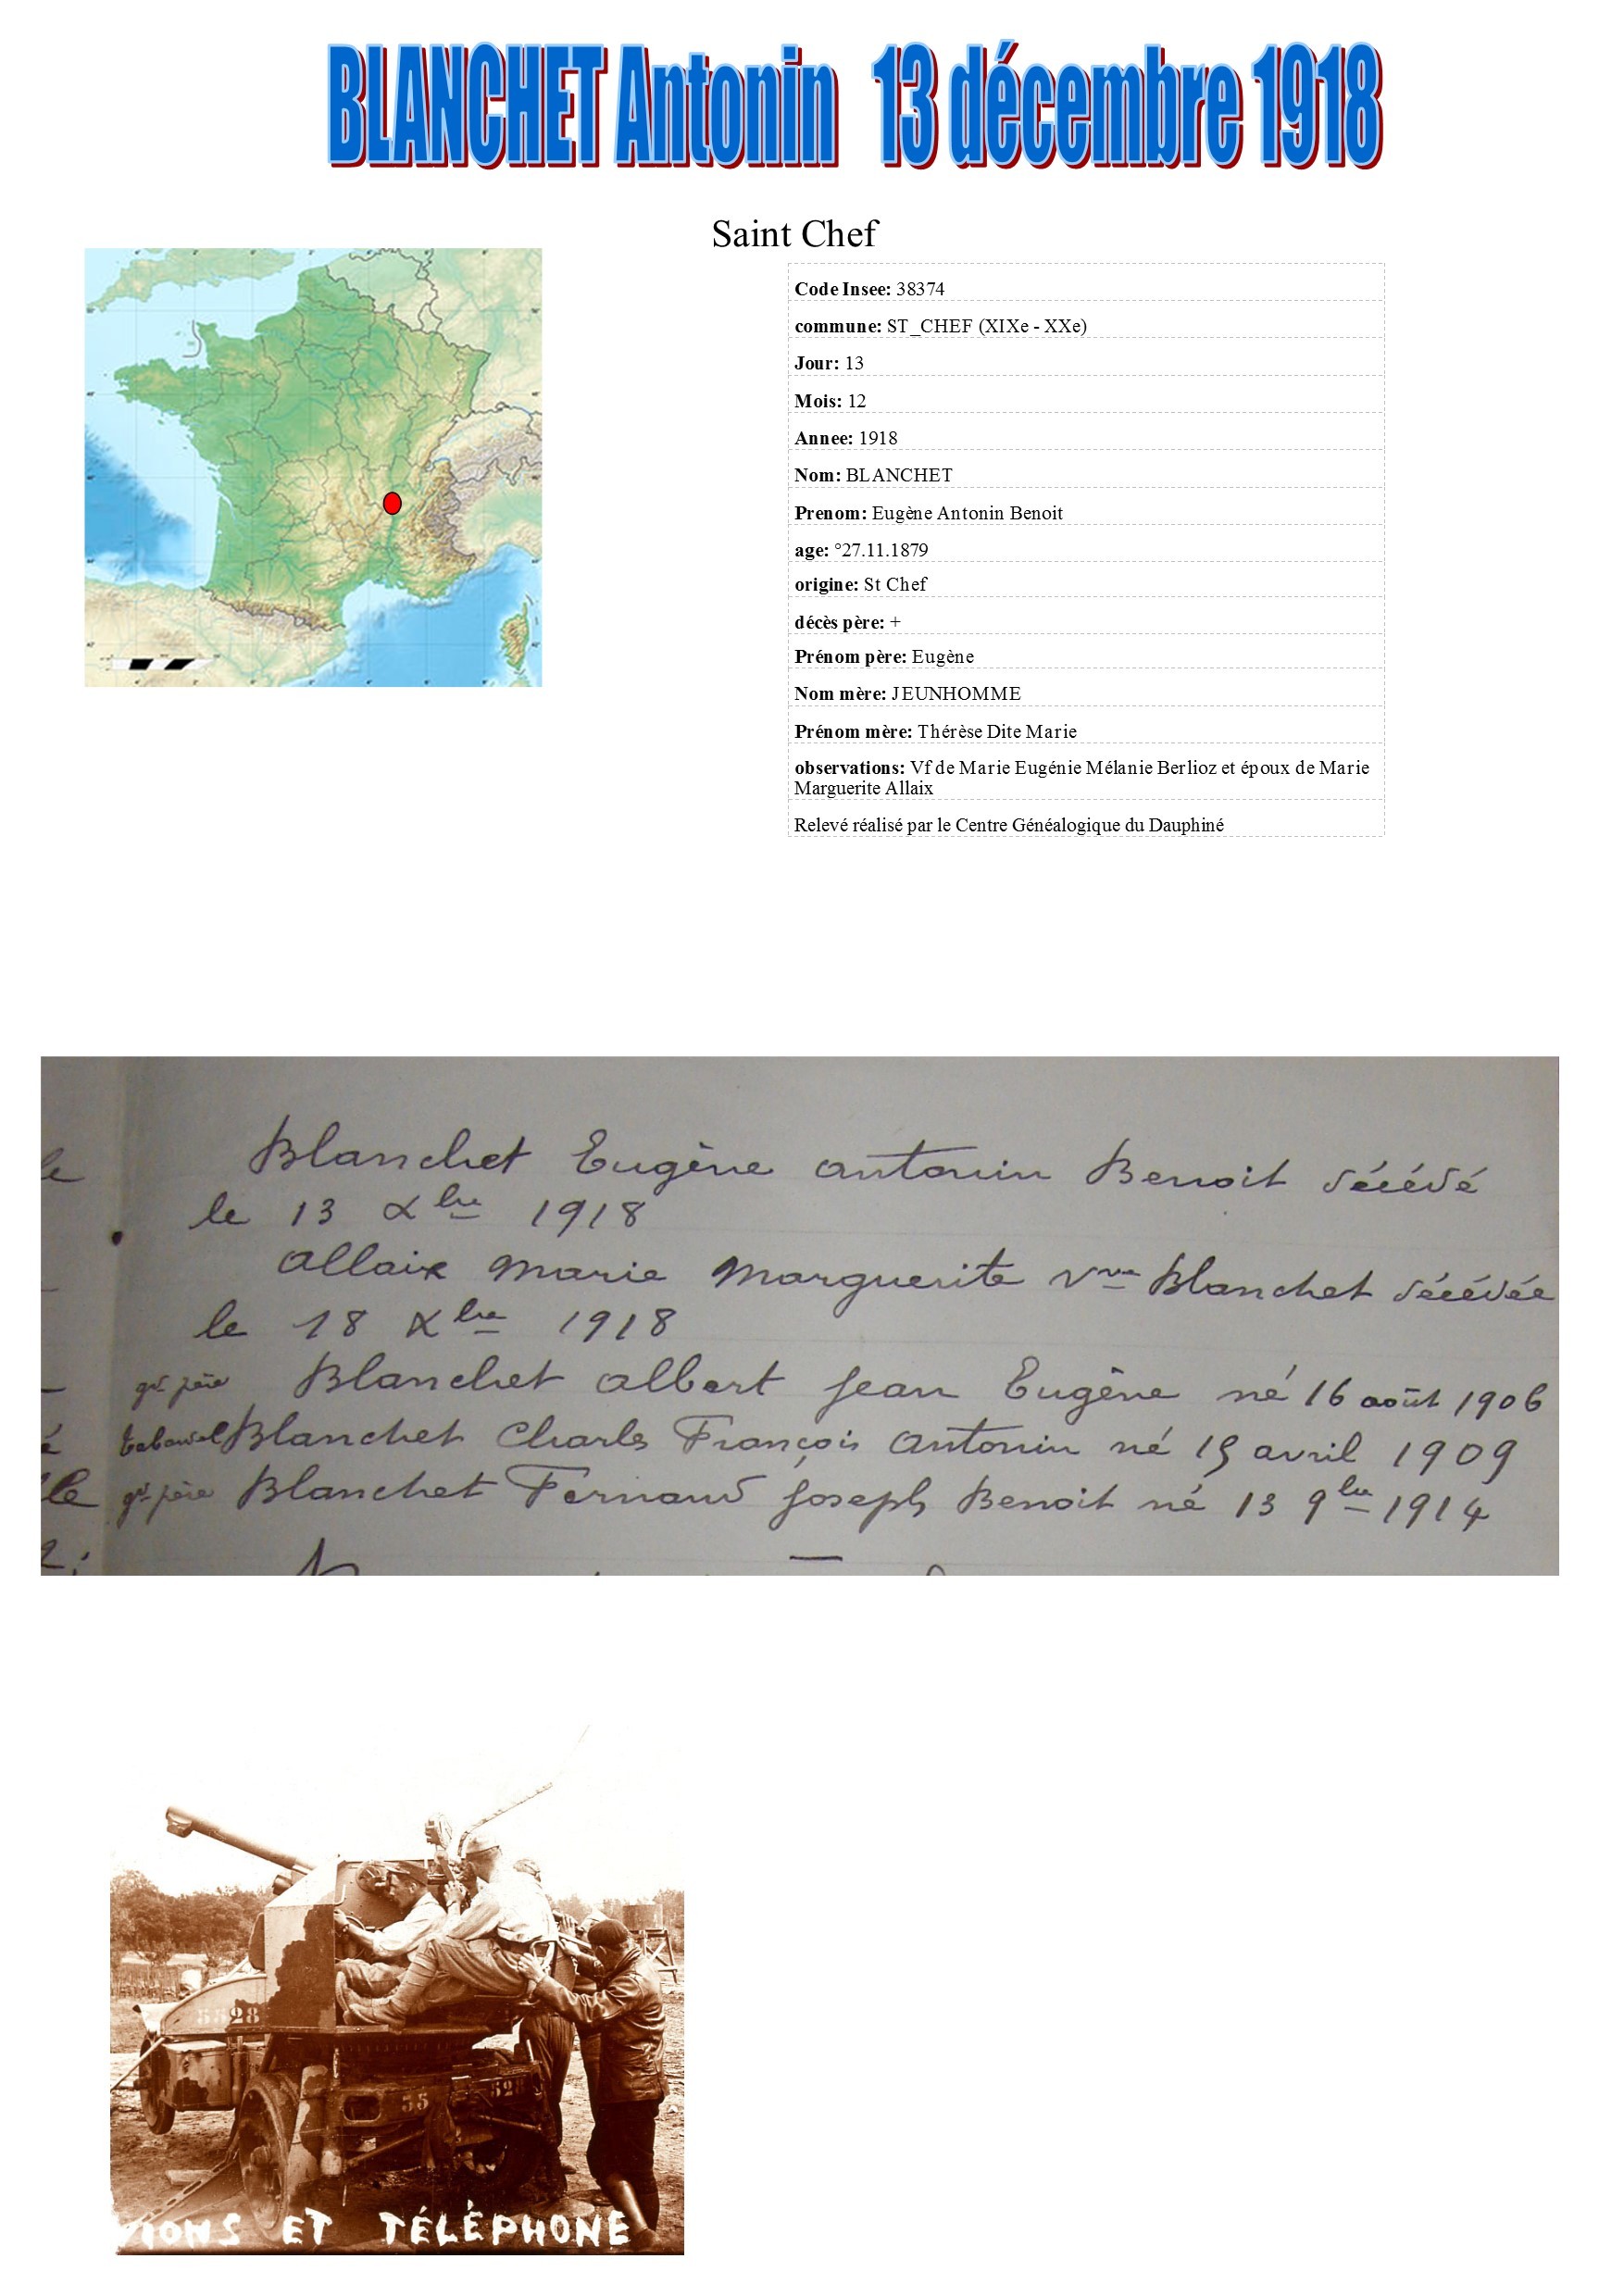 BLANCHET Antonin 13 décembre 1918
Saint Chef
Code Insee: 38374
commune: ST_CHEF (XIXe - XXe)
Jour: 13
Mois: 12
Annee: 1918
Nom: BLANCHET
Prenom: Eugène Antonin Benoit
age: °27.11.1879
origine: St Chef
décès père: +
Prénom père: Eugène
Nom mère: JEUNHOMME
Prénom mère: Thérèse Dite Marie
observations: Vf de Marie Eugénie Mélanie Berlioz et époux de Marie
Marguerite Allaix
Relevé réalisé par le Centre Généalogique du Dauphiné
Blanchet Eugène antonin Benoit décédé
le 13 Xbre 1918
allaix marie marguerite Vve Blanchet décédée
le 18 Xbre 1918
gd père Blanchet albert jean Eugène né 16 août 1906
Blanchet Charles François antonin né 15 avril 1909
gd père Blanchet Fernand joseph Benoit né 13 9bre 1914
5528
55 528
VIONS ET TÉLÉPHONE